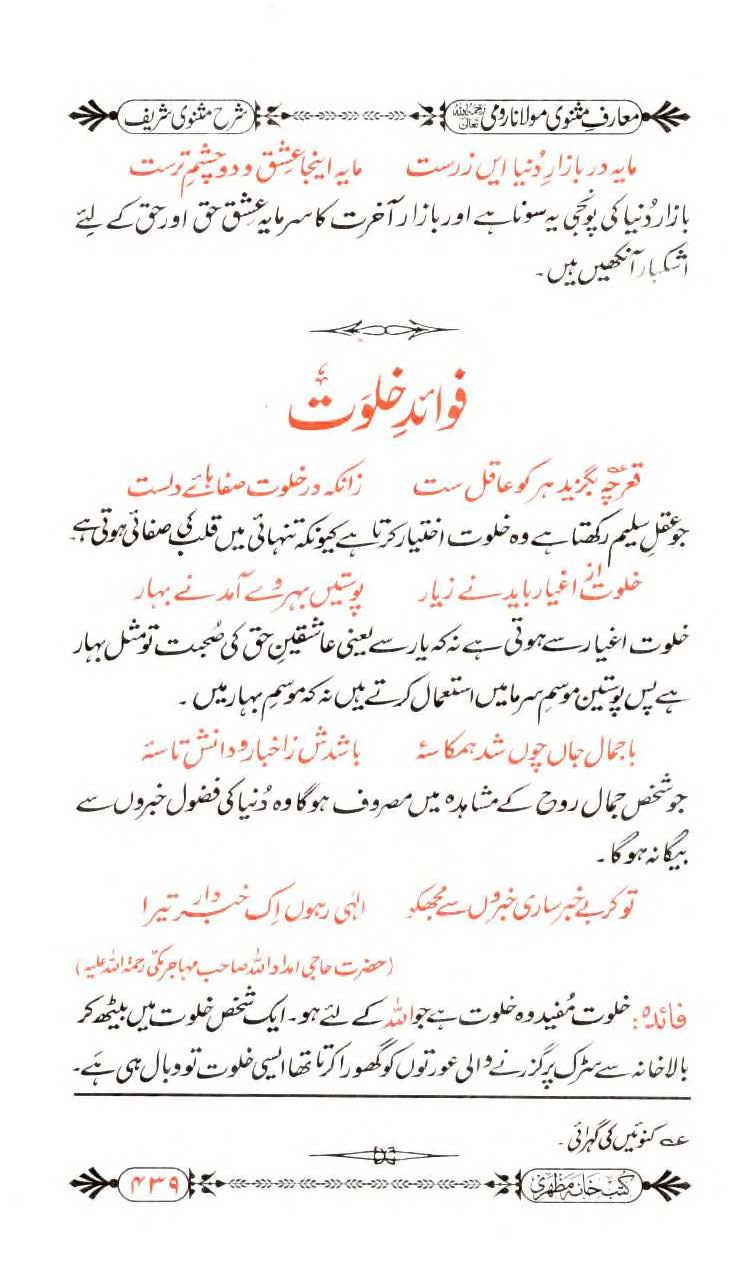 معارفِ مثنوی مولانا رومی رحمۃ اللہ تعالیٰ شرح مثنوی شریف
مایہ در بازارِ دُنیا ایں زرست مایہ اینجا عِشق و دو چشمِ ترست
بازارِ دُنیا کی پونجی یہ سونا ہے اور بازارِ آخرت کا سرمایہ عِشقِ حق اور حق کے لئے
اشکبار آنکھیں ہیں۔
فوائدِ خلوَت
قعرِ چَہ بگزید ہر کو عاقل ست زانکہ در خلوت صفاہائے دلست
جو عقلِ سلیم رکھتا ہے وہ خلوت اختیار کرتا ہے کیونکہ تنہائی میں قلب کی صفائی ہوتی ہے۔
خلوت از اغیار باید نے زیار پوستیں بہر وے آمد نے بہار
خلوت اغیار سے ہوتی ہے نہ کہ یار سے یعنی عاشقینِ حق کی صُحبت تو مثل بہار
ہے پس پوستین موسمِ سرما میں استعمال کرتے ہیں نہ کہ موسمِ بہار میں۔
با جمالِ جاں چوں شد ہمکاسۂ باشدش ز اخبار و دانش تاسۂ
جو شخص جمالِ روح کے مشاہدہ میں مصروف ہوگا وہ دُنیا کی فضول خبروں سے
بیگانہ ہوگا۔
تو کر بے خبر ساری خبروں سے مجھکو الٰہی رہوں اِک خبردار تیرا
(حضرت حاجی امداد اللہ صاحب مہاجر مکّی رحمۃ اللہ علیہ)
فائدہ: خلوت مُفید وہ خلوت ہے جو اللہ کے لئے ہو۔ ایک شخص خلوت میں بیٹھ کر
بالا خانہ سے سڑک پر گزرنے والی عورتوں کو گھورا کرتا تھا ایسی خلوت تو وبال ہی ہے۔
عہ کنوئیں کی گہرائی۔
کتب خانہ مظہری ۴۳۹